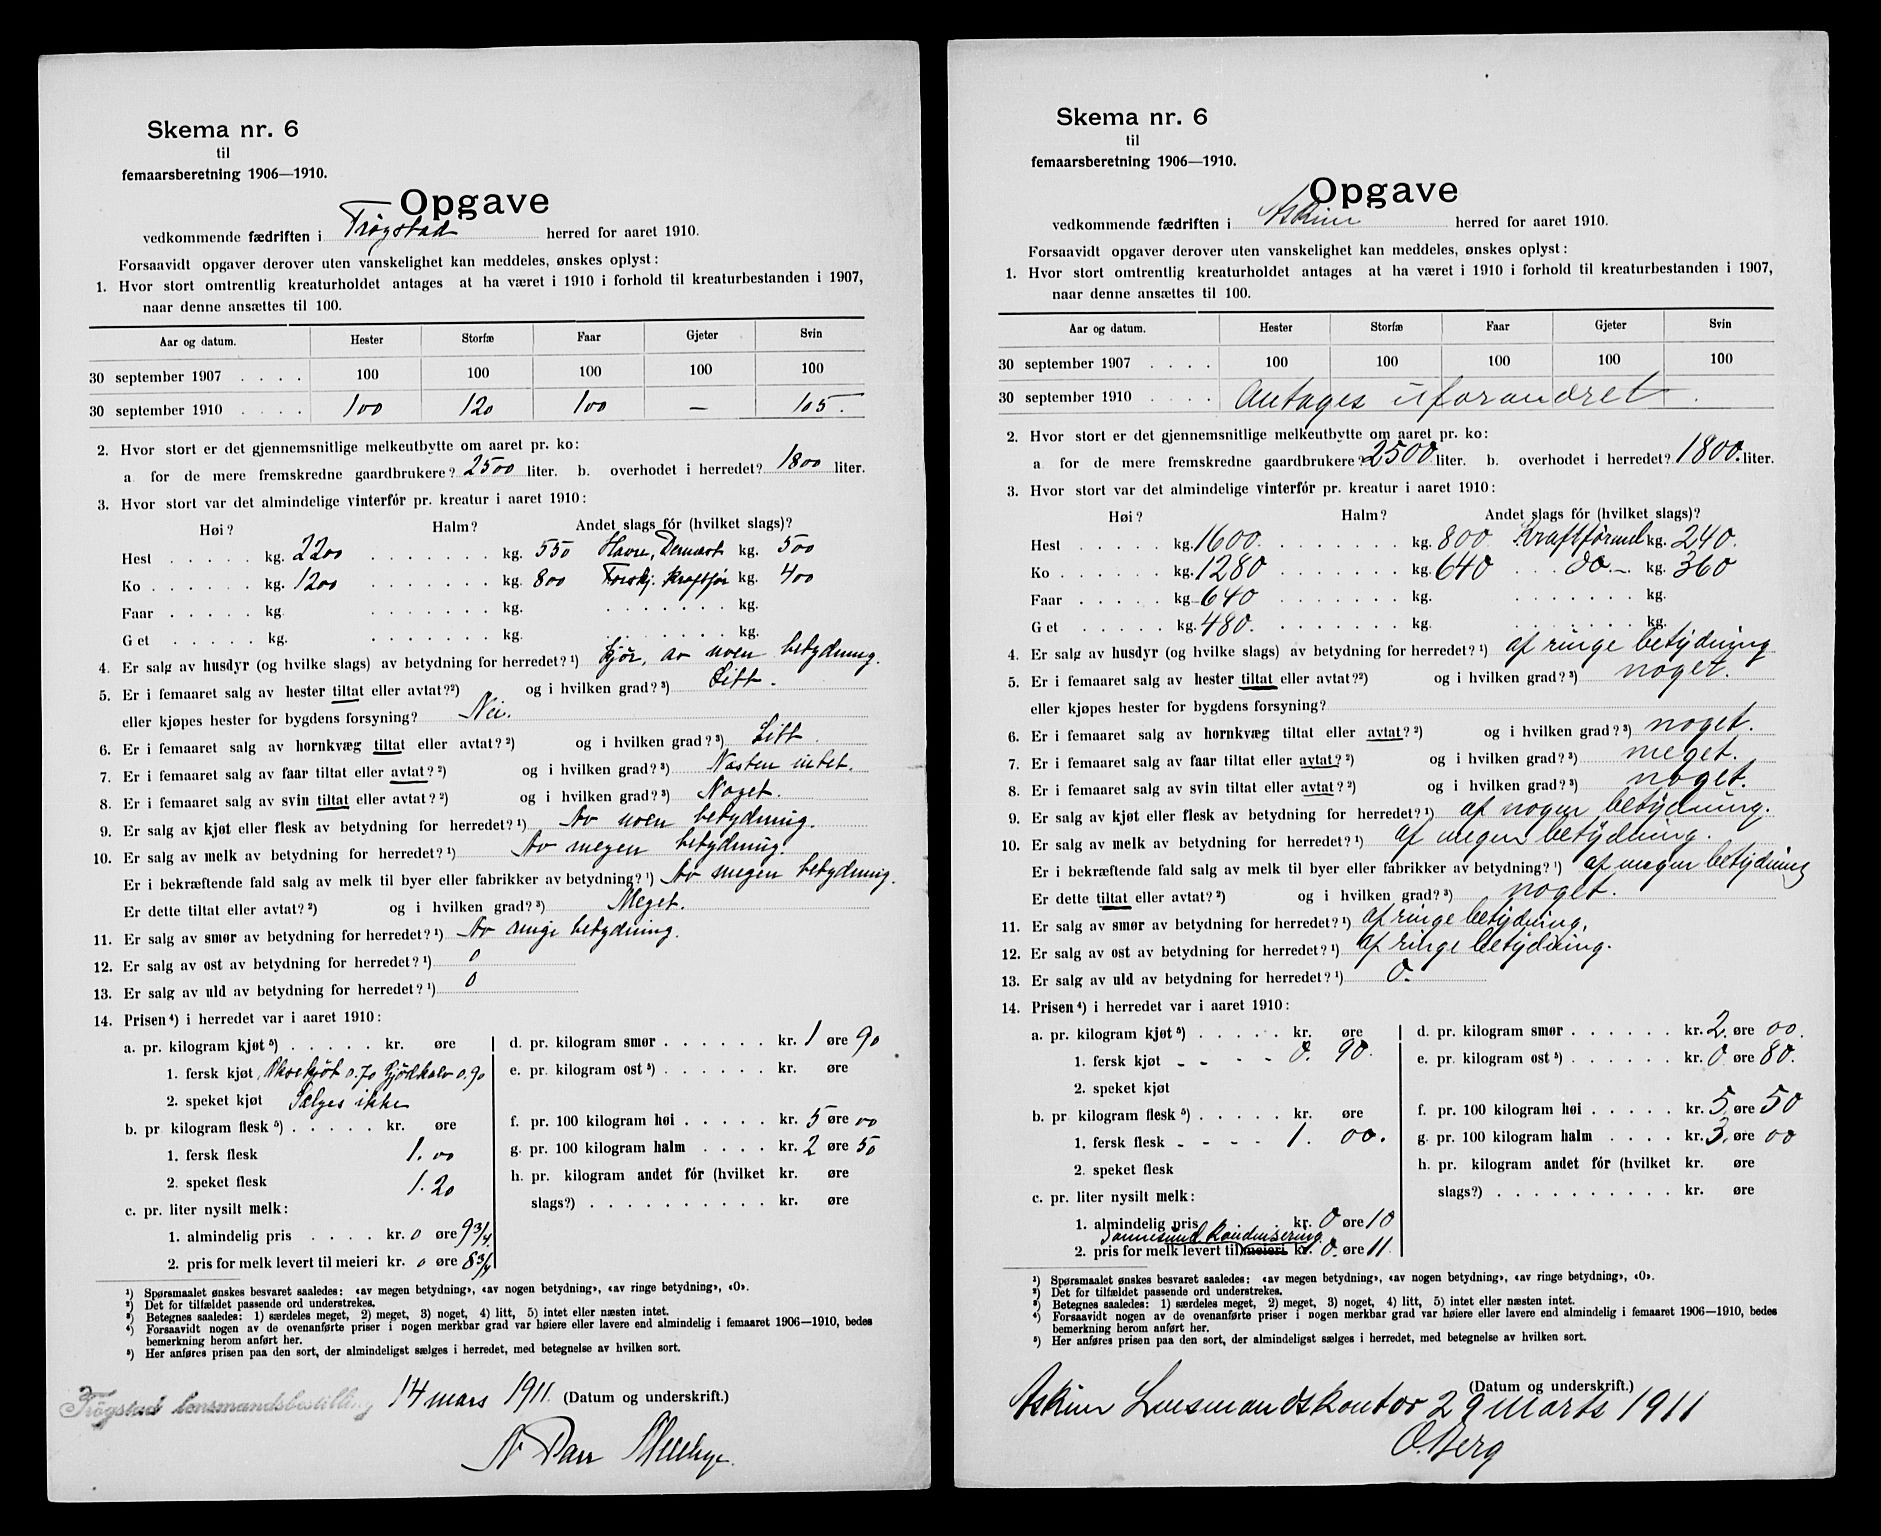 Skema nr. 6
til
femaarsberetning 1906—1910.
Opgave
vedkommende fædriften i Trøgstad herred for aaret 1910.
Forsaavidt opgaver derover uten vanskelighet kan meddeles, ønskes oplyst:
1. Hvor stort omtrentlig kreaturholdet antages at ha været i 1910 i forhold til kreaturbestanden i 1907,
naar denne ansættes til 100.
Aar og datum. Hester Storfæ Faar Gjeter Svin
30 september 1907 . . . . 100 100 100 100 100
30 september 1910 . . . . 100 120 100 — 105.
2. Hvor stort er det gjennemsnitlige melkeutbytte om aaret pr. ko:
a for de mere fremskredne gaardbrukere? 2500 liter. b. overhodet i herredet? 1800 liter.
3. Hvor stort var det almindelige vinterfór pr. kreatur i aaret 1910:
Høi? Halm? Andet slags fór (hvilket slags)?
Hest . . . . . kg. 2200 . . . . . . . kg. 550 Havre, kg. 500
Ko . . . . . . kg. 1200 . . . . . . . kg. 800 Forskj. Kraftfór kg. 400
Faar . . . . . kg. . . . . . . . kg. . . . . . . . kg.
Get . . . . . kg. . . . . . . . kg. . . . . . . . kg.
4. Er salg av husdyr (og hvilke slags) av betydning for herredet?¹) Kjør, av noen betydning.
5. Er i femaaret salg av hester tiltat eller avtat?²) og i hvilken grad?³) Litt.
eller kjøpes hester for bygdens forsyning? Nei.
6. Er i femaaret salg av hornkvæg tiltat eller avtat?²) og i hvilken grad?³) Litt.
7. Er i femaaret salg av faar tiltat eller avtat?²) og i hvilken grad?³) Næsten intet.
8. Er i femaaret salg av svin tiltat eller avtat?²) og i hvilken grad?³) Noget.
9. Er salg av kjøt eller flesk av betydning for herredet?¹) Av noen betydning.
10. Er salg av melk av betydning for herredet?¹) Av megen betydning.
Er i bekræftende fald salg av melk til byer eller fabrikker av betydning?¹) Av megen betydning.
Er dette tiltat eller avtat?²) og i hvilken grad?³) Meget.
11. Er salg av smør av betydning for herredet?¹) Av ringe betydning.
12. Er salg av ost av betydning for herredet?¹) 0
13. Er salg av uld av betydning for herredet?¹) 0
14. Prisen⁴) i herredet var i aaret 1910:
a. pr. kilogram kjøt⁵) . . . . . kr. øre
1. fersk kjøt, Oksekjøt 0.70 Gjødkalv 0.90
2. speket kjøt Sælges ikke
b. pr kilogram flesk⁵) . . . . . kr. øre
1. fersk flesk 1.00
2. speket flesk 1.20
c. pr. liter nysilt melk:
1. almindelig pris . . . . kr. 0 øre 9 3/4.
2. pris for melk levert til meieri kr. 0 øre 8 3/4
d. pr. kilogram smør . . . . . . kr. 1 øre 90
e. pr. kilogram ost⁵) . . . . . . kr. øre
f. pr. 100 kilogram høi . . . . . kr. 5 øre 00
g. pr. 100 kilogram halm . . . . kr. 2 øre 50
h. pr. kilogram andet fór (hvilket kr. øre
slags?) . . . . . . . . . . kr. øre
¹) Spørsmaalet ønskes besvaret saaledes: «av megen betydning», «av nogen betydning», «av ringe betydning», «0».
²) Det for tilfældet passende ord understrekes.
³) Betegnes saaledes: 1) særdeles meget, 2) meget, 3) noget, 4) litt, 5) intet eller næsten intet.
⁴) Forsaavidt nogen av de ovenanførte priser i nogen merkbar grad var høiere eller lavere end almindelig i femaaret 1906—1910, bedes
bemerkning herom anført her.
⁵) Her anføres prisen paa den sort, der almindeligst sælges i herredet, med betegnelse av hvilken sort.
Trøgstad lensmandsbestilling 14 mars 1911. (Datum og underskrift.)

Skema nr. 6
til
femaarsberetning 1906—1910.
Opgave
vedkommende fædriften i Askim herred for aaret 1910.
Forsaavidt opgaver derover uten vanskelighet kan meddeles, ønskes oplyst:
1. Hvor stort omtrentlig kreaturholdet antages at ha været i 1910 i forhold til kreaturbestanden i 1907,
naar denne ansættes til 100.
Aar og datum. Hester Storfæ Faar Gjeter Svin
30 september 1907 . . . . 100 100 100 100 100
30 september 1910 . . . . Antages uforandret.
2. Hvor stort er det gjennemsnitlige melkeutbytte om aaret pr. ko:
a for de mere fremskredne gaardbrukere? 2500 liter. b. overhodet i herredet? 1800. liter.
3. Hvor stort var det almindelige vinterfór pr. kreatur i aaret 1910:
Høi? Halm? Andet slags fór (hvilket slags)?
Hest . . . . . kg. 1600. . . . . . . . kg. 800 Kraftfórmel kg. 240.
Ko . . . . . . kg. 1280 . . . . . . . kg. 640 . . . do.— kg. 360
Faar . . . . . kg. 640 . . . . . . . kg. . . . . . . . kg.
Get . . . . . kg. 480. . . . . . . . kg. . . . . . . . kg.
4. Er salg av husdyr (og hvilke slags) av betydning for herredet?¹) af ringe betydning
5. Er i femaaret salg av hester tiltat eller avtat?²) og i hvilken grad?³) noget.
eller kjøpes hester for bygdens forsyning?
6. Er i femaaret salg av hornkvæg tiltat eller avtat?²) og i hvilken grad?³) noget.
7. Er i femaaret salg av faar tiltat eller avtat?²) og i hvilken grad?³) meget.
8. Er i femaaret salg av svin tiltat eller avtat?²) og i hvilken grad?³) noget.
9. Er salg av kjøt eller flesk av betydning for herredet?¹) af nogen betydning.
10. Er salg av melk av betydning for herredet?¹) af megen betydning.
Er i bekræftende fald salg av melk til byer eller fabrikker av betydning?¹) af megen betydning
Er dette tiltat eller avtat?²) og i hvilken grad?³) noget.
11. Er salg av smør av betydning for herredet?¹) af ringe betydning.
12. Er salg av ost av betydning for herredet?¹) af ringe betydning.
13. Er salg av uld av betydning for herredet?¹) 0.
14. Prisen⁴) i herredet var i aaret 1910:
a. pr. kilogram kjøt⁵) . . . . . kr. øre
1. fersk kjøt - - - - 0. 90.
2. speket kjøt
b. pr kilogram flesk⁵) . . . . . kr. øre
1. fersk flesk - - - - 1. 00.
2. speket flesk
c. pr. liter nysilt melk:
1. almindelig pris kr. 0 øre 10
kondensering
2. pris for melk levert til meieri kr. 0. øre 11.
d. pr. kilogram smør . . . . . . kr. 2. øre 00.
e. pr. kilogram ost⁵) . . . . . . kr. 0 øre 80.
f. pr. 100 kilogram høi . . . . . kr. 5. øre 50
g. pr. 100 kilogram halm . . . . kr. 3. øre 00
h. pr. kilogram andet fór (hvilket kr. øre
slags?) . . . . . . . . . . kr. øre
¹) Spørsmaalet ønskes besvaret saaledes: «av megen betydning», «av nogen betydning», «av ringe betydning», «0».
²) Det for tilfældet passende ord understrekes.
³) Betegnes saaledes: 1) særdeles meget, 2) meget, 3) noget, 4) litt, 5) intet eller næsten intet.
⁴) Forsaavidt nogen av de ovenanførte priser i nogen merkbar grad var høiere eller lavere end almindelig i femaaret 1906—1910, bedes
bemerkning herom anført her.
⁵) Her anføres prisen paa den sort, der almindeligst sælges i herredet, med betegnelse av hvilken sort.
(Datum og underskrift.)
Askim Lensmandskontor 29 marts 1911
O. Berg